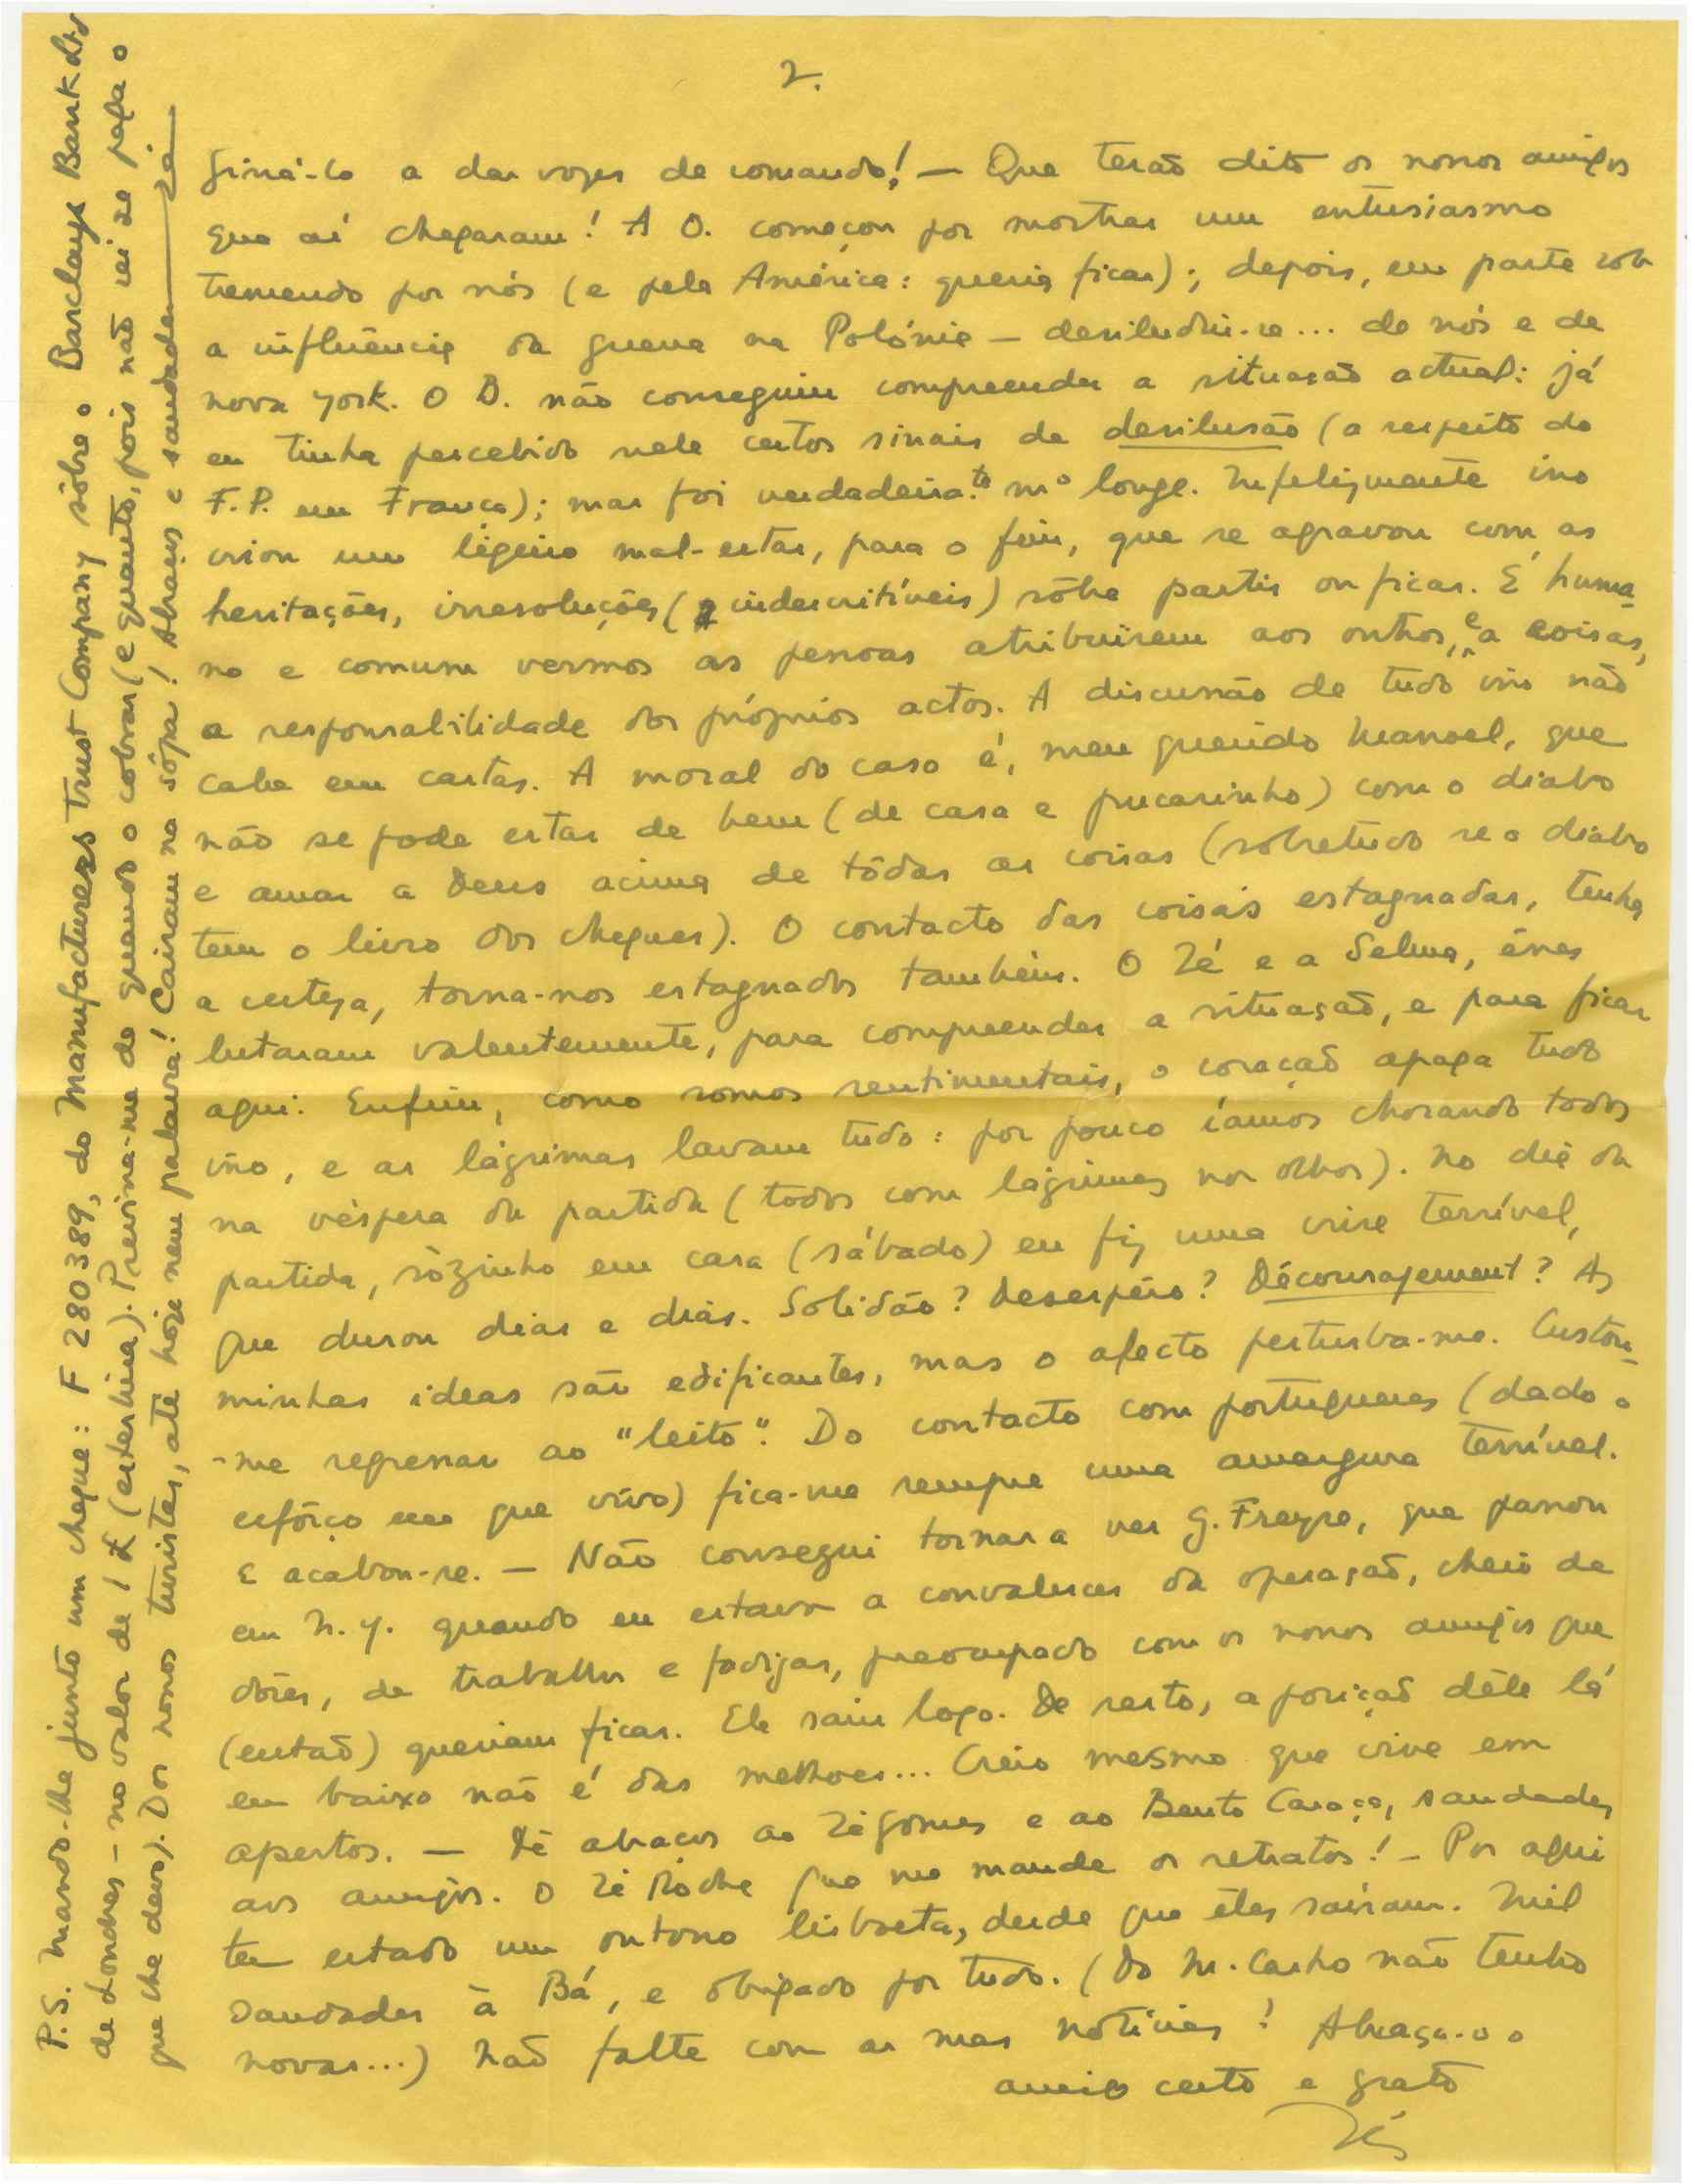 2.
giná-lo a dar vozes de comando! — Que terão dito os nossos amigos
que aí chegaram! A O. começou por mostrar um entusiasmo
tremendo por nós (e pela América: queria ficar); depois, em parte sob
a influência da guerra na Polónia — desiludiu-se... de nós e de
nova york. O D. não conseguiu compreender a situação actual: já
eu tinha percebido nele certos sinais de desilusão (a respeito do
F.P. em França); mas foi verdadeira.te mº longe. Infelizmente isso
criou um ligeiro mal-estar, para o fim, que se agravou com as
hesitações, irresoluções (indescritíveis) sôbre partir ou ficar. É huma-
no e comum vermos as pessoas atribuirem aos outros, e a coisas,
a responsabilidade dos próprios actos. A discussão de tudo isso não
cabe em cartas. A moral do caso é, meu querido Manoel, que
não se pode estar de bem (de casa e pucarinho) com o diabo
e amar a Deus acima de tôdas as coisas (sobretudo se o diabo
tem o livro dos cheques). O contacto das coisas estagnadas, tenha
a certeza, torna-nos estagnados também. O Zé e a Selma, êsses
lutaram valentemente, para compreender a situação, e para ficar
aqui. Enfim, como somos sentimentais, o coração apaga tudo
isso, e as lágrimas lavam tudo: por pouco íamos chorando todos
na véspera da partida (todos com lágrimas nos olhos). No dia da
partida, sòzinho em casa (sábado) eu fiz uma crise terrível,
que durou dias e dias. Solidão? Desespêro? Découragement? As
minhas ideas são edificantes, mas o afecto perturba-me. Custou-
-me regressar ao "leito". Do contacto com portugueses (dado o
esfôrço em que vivo) fica-me sempre uma amargura terrível.
E acabou-se. — Não consegui tornar a ver G. Freyre, que passou
em N.Y. quando eu estava a convalescer da operação, cheio de
dôres, de trabalhos e fadigas, preocupado com os nossos amigos que
(então) queriam ficar. Ele saiu logo. De resto, a posição dêle lá
em baixo não é das melhores... Creio mesmo que vive em
apertos. — Dê abraços ao Zé Gomes e ao Bento Caraça, saudades
aos amigos. O Zé Rocha que me mande os retratos! — Por aqui
tem estado um outono lisboeta, desde que êles saíram. Mil
saudades à Bá, e obrigado por tudo. (Do M. Casho não tenho
novas...) Não falte com as suas notícias! Abraça-o o
amigo certo e grato
Zés
P.S. Mando-lhe junto um cheque: F 280389, do Manufacturers Trust Company sôbre o Barclays Bank Ltd
de Londres — no valor de 1 £ (esterlina). Previna-me de quando o cobrar (e quanto, pois não sei se paga o
que lhe devo). Dos nossos turistas, até hoje nem palavra! Caíram na sôpa! Abraços e saudades — Zé